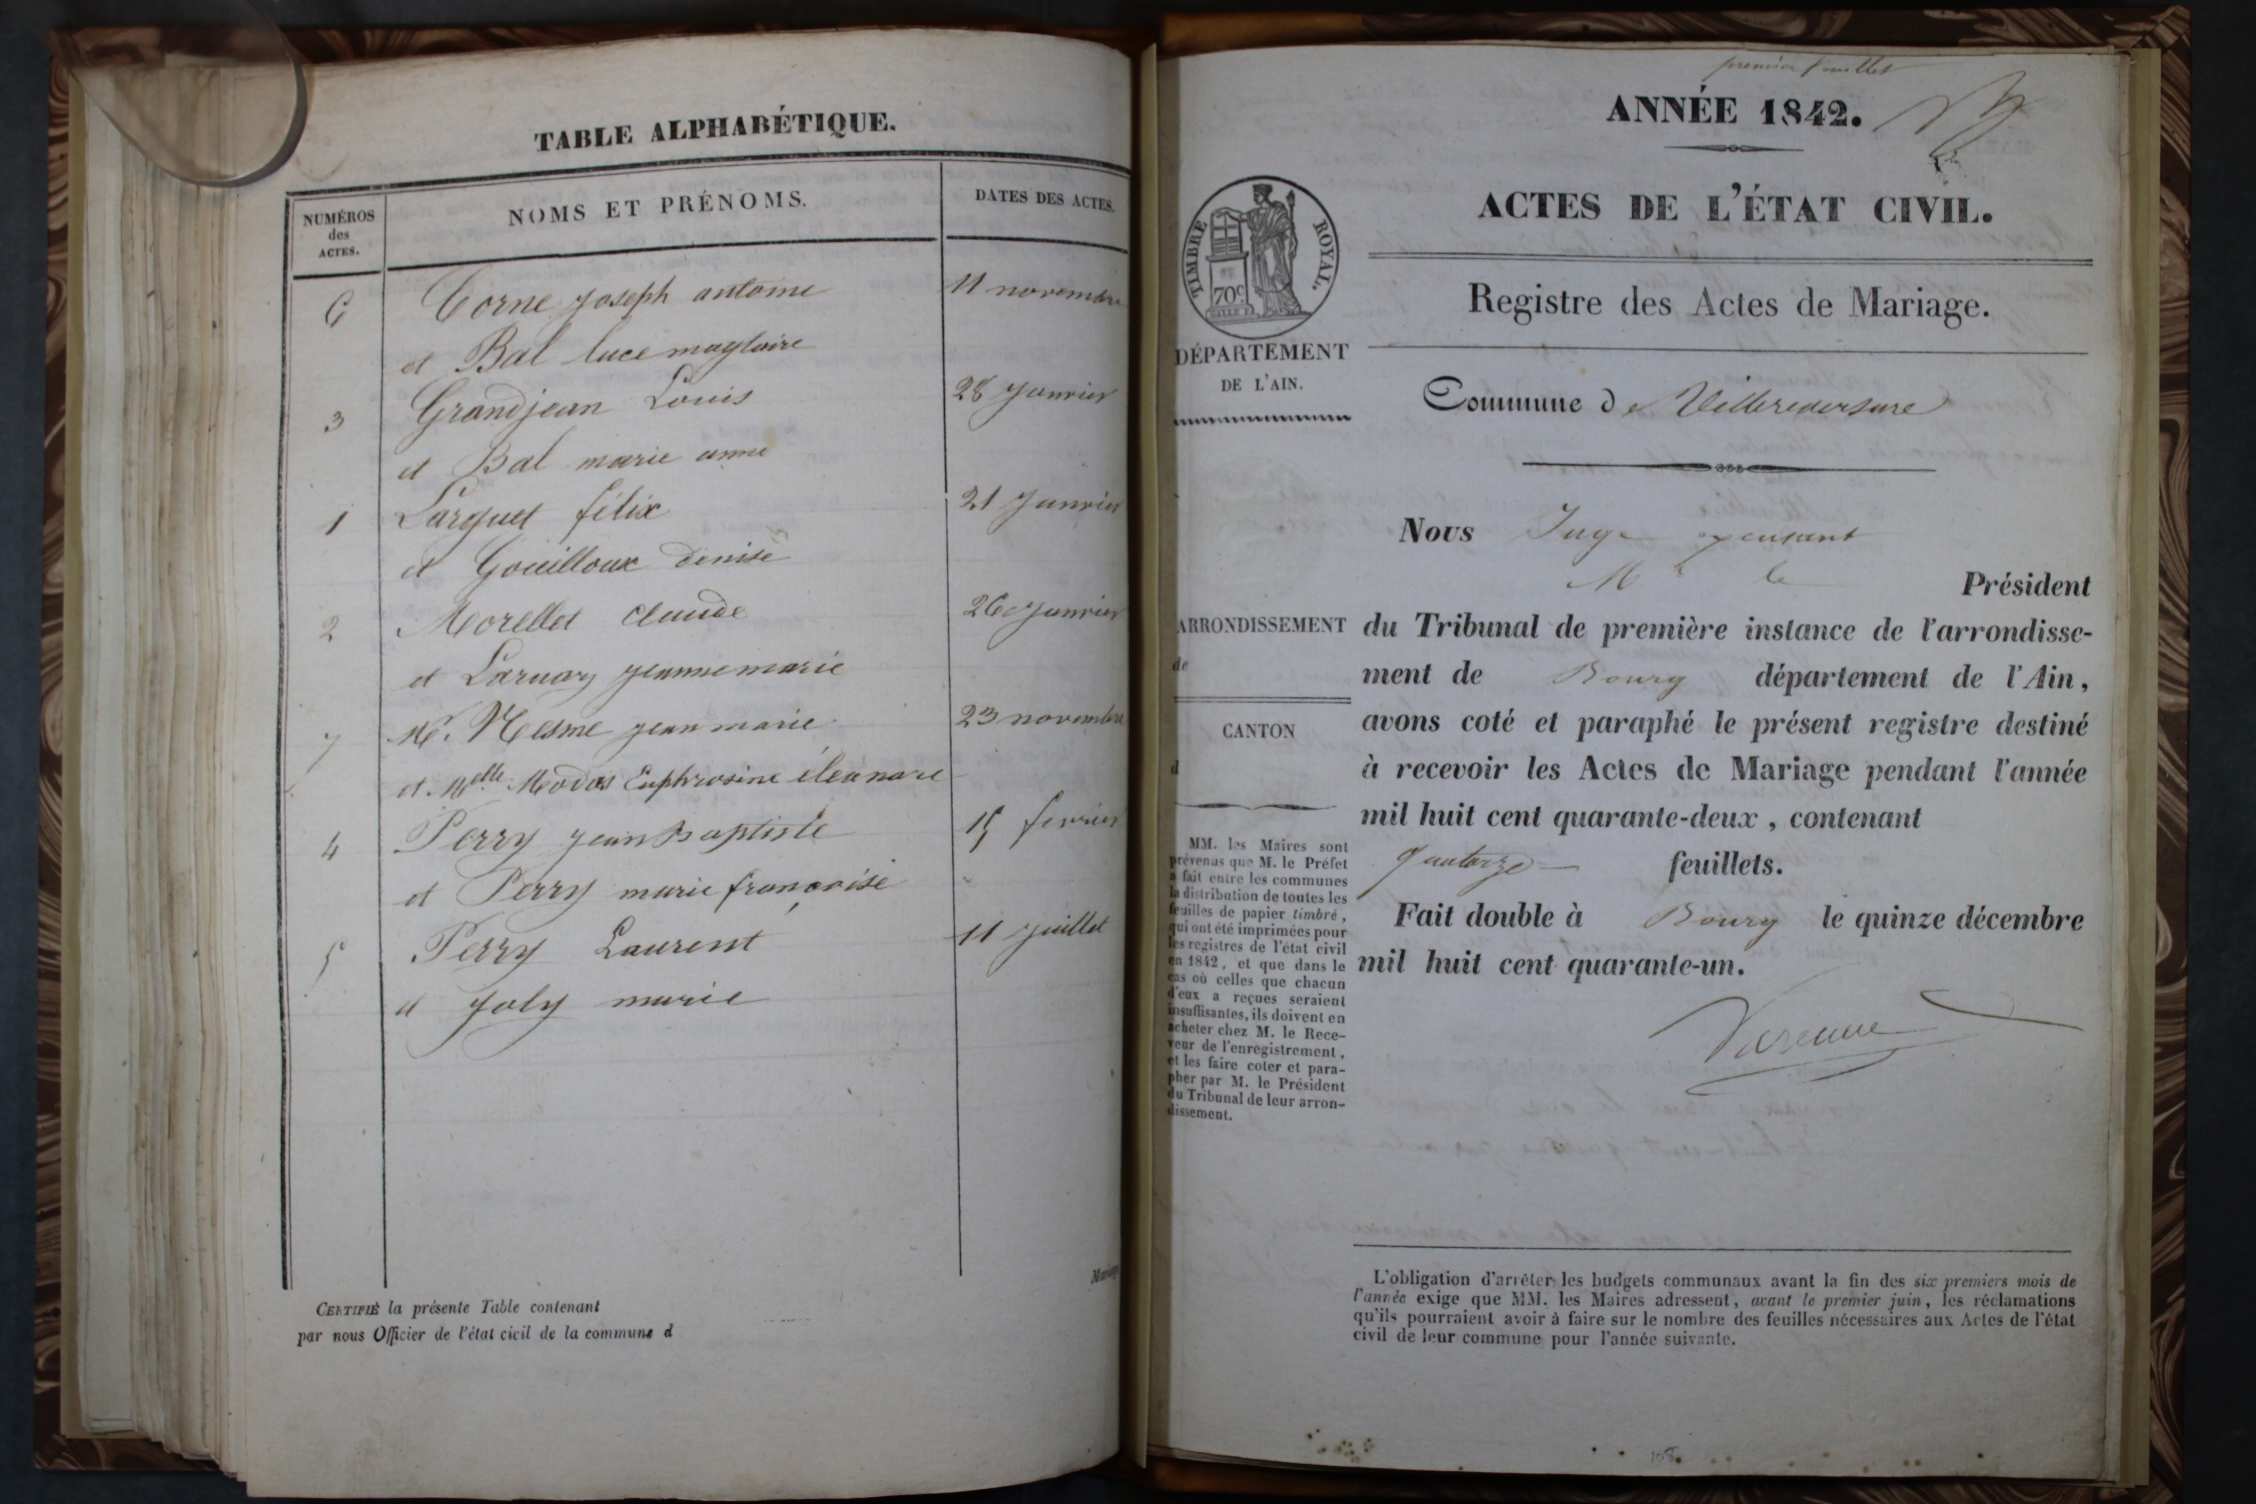 TABLE ALPHABÉTIQUE.
NUMÉROS
des
ACTES.
NOMS ET PRÉNOMS.
DATES DES ACTES.
6 Corne joseph antoine 11 novembre
et Bal luce magloire
3 Grandjean Louis 28 janvier
et Bal marie anne
1 Larguet félix 21 janvier
et Gouilloux denise
2 Morellet claude 26 janvier
et jeanne marie
7 Mr. Mesme jean marie 23 novembre
et Melle. Euphrosine éléanore
4 Perry jean Baptiste 15 fevrier
et Perry marie françoise
5 Perry Laurent 11 juillet
et joly marie
Mariage
CERTIFIÉ la présente Table contenant
par nous Officier de l'état civil de la commune d
premier feuillet
ANNÉE 1842.
ACTES DE L'ÉTAT CIVIL.
Registre des Actes de Mariage.
TIMBRE ROYAL.
70c
DÉPARTEMENT
DE L'AIN.
Commune de Villereversure
Nous Juge
Mr le Président
ARRONDISSEMENT
de
CANTON
d
du Tribunal de première instance de l'arrondisse-
ment de Bourg département de l'Ain,
avons coté et paraphé le présent registre destiné
à recevoir les Actes de Mariage pendant l'année
mil huit cent quarante-deux, contenant
quatorze feuillets.
Fait double à Bourg le quinze décembre
mil huit cent quarante-un.
MM. les Maires sont
prévenus que M. le Préfet
a fait entre les communes
la distribution de toutes les
feuilles de papier timbré,
qui ont été imprimées pour
les registres de l'état civil
en 1842, et que dans le
cas où celles que chacun
d'eux a reçues seraient
insuffisantes, ils doivent en
acheter chez M. le Rece-
veur de l'enregistrement,
et les faire coter et para-
pher par M. le Président
du Tribunal de leur arron-
dissement.
L'obligation d'arrêter les budgets communaux avant la fin des six premiers mois de
l'année exige que MM. les Maires adressent, avant le premier juin, les réclamations
qu'ils pourraient avoir à faire sur le nombre des feuilles nécessaires aux Actes de l'état
civil de leur commune pour l'année suivante.